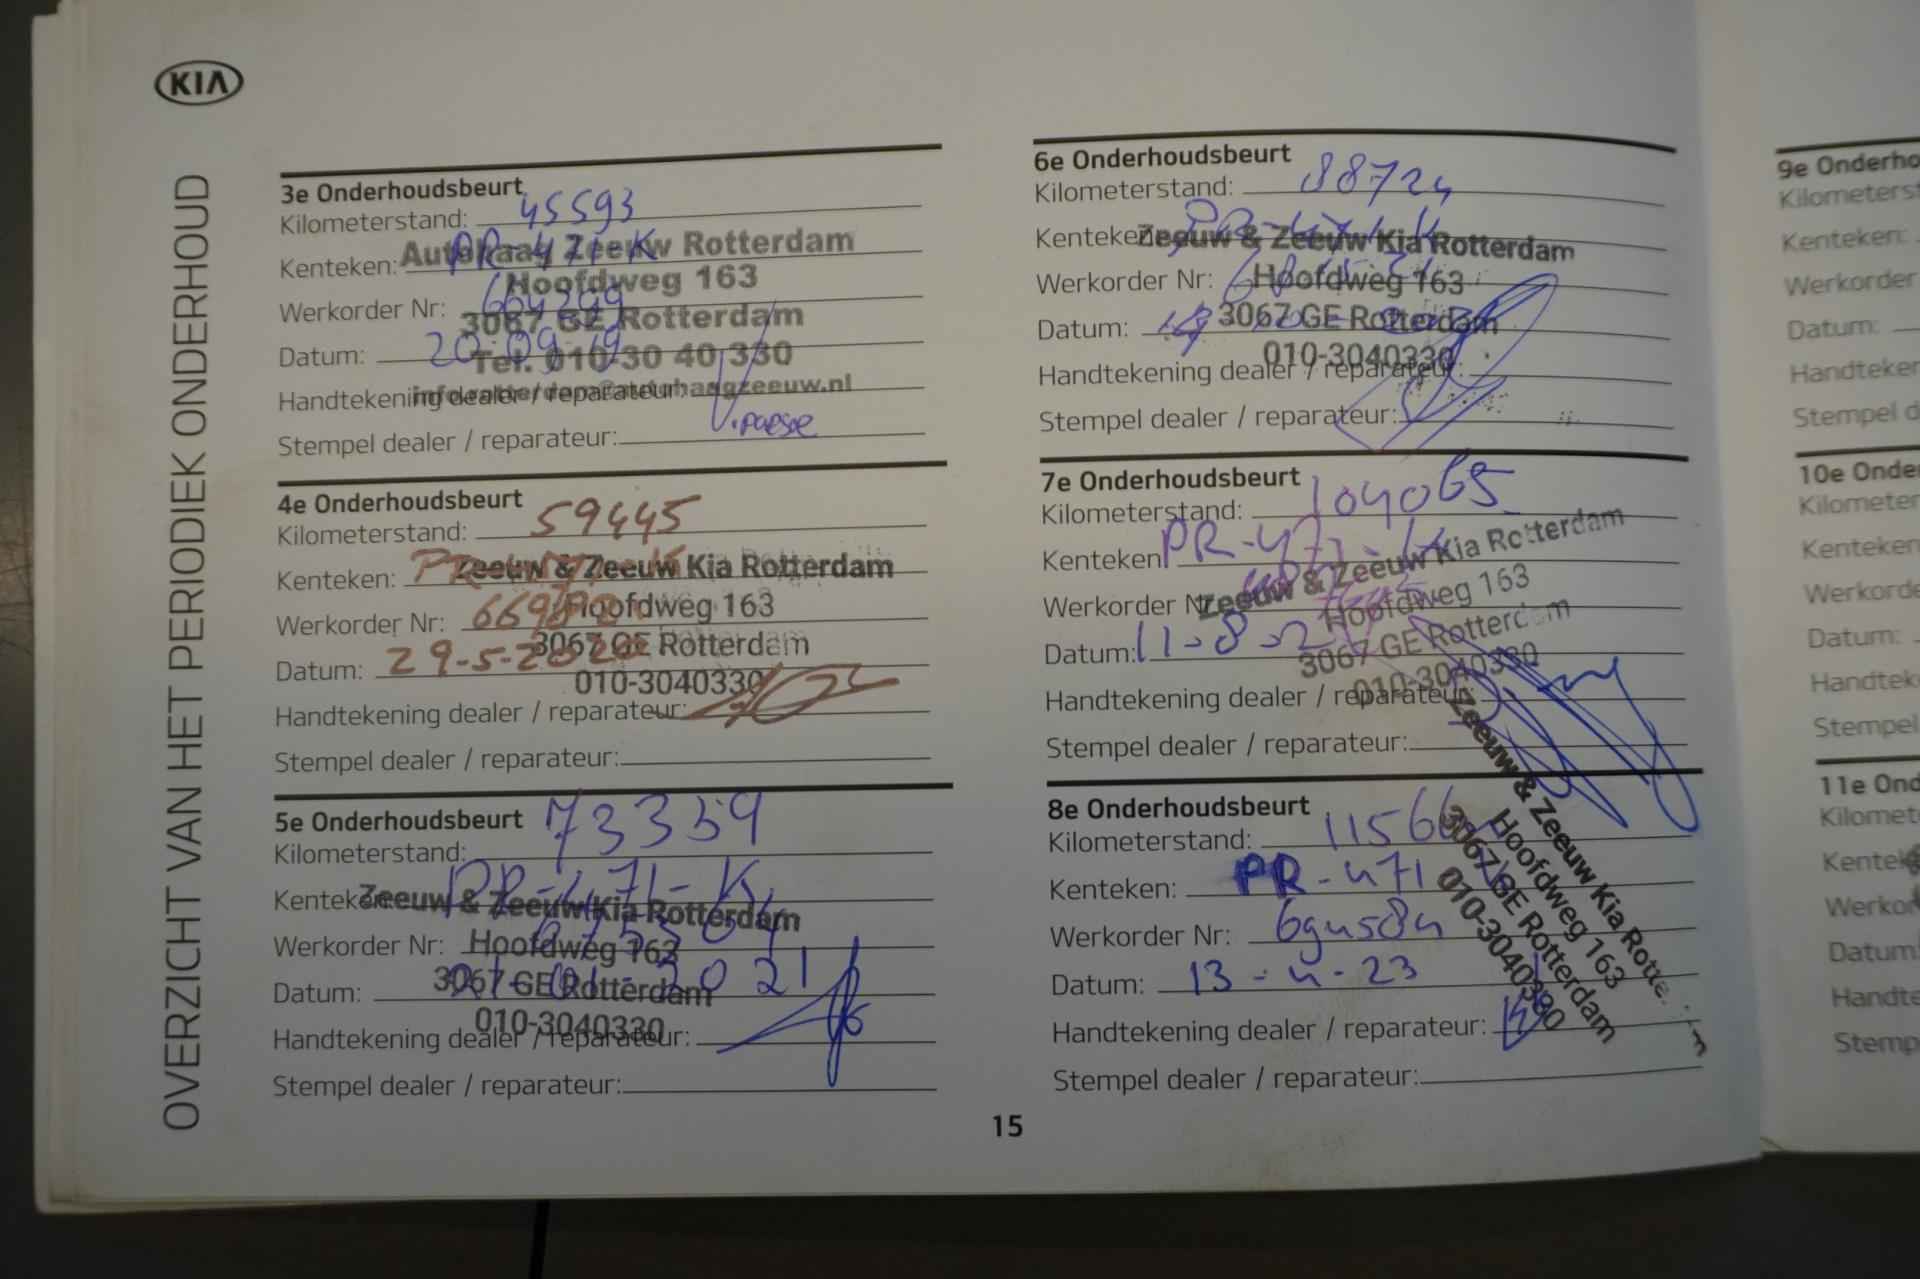 KIA
OVERZICHT VAN HET PERIODIEK ONDERHOUD
3e Onderhoudsbeurt
Kilometerstand: 45593
Kenteken: PR-471-K
Autohaag Zeeuw Rotterdam
Hoofdweg 163
Werkorder Nr: 664299
3067 GE Rotterdam
Datum: 20-09-19
Tel. 010-30 40 330
Handtekening dealer / reparateur:
Stempel dealer / reparateur:
4e Onderhoudsbeurt
Kilometerstand: 59445
Kenteken:
Zeeuw & Zeeuw Kia Rotterdam
Hoofdweg 163
Werkorder Nr:
3067 GE Rotterdam
Datum: 29-5-2020
010-3040330
Handtekening dealer / reparateur:
Stempel dealer / reparateur:
5e Onderhoudsbeurt
Kilometerstand: 73359
Kenteken: PR-471-K
Zeeuw & Zeeuw Kia Rotterdam
Werkorder Nr:
Hoofdweg 163
Datum: 21-01-2021
3067 GE Rotterdam
010-3040330
Handtekening dealer / reparateur:
Stempel dealer / reparateur:
6e Onderhoudsbeurt
Kilometerstand: 88724
Kenteken:
Zeeuw & Zeeuw Kia Rotterdam
Werkorder Nr:
Hoofdweg 163
Datum:
3067 GE Rotterdam
010-3040330
Handtekening dealer / reparateur:
Stempel dealer / reparateur:
7e Onderhoudsbeurt
Kilometerstand: 104065
Kenteken PR-471-K
Zeeuw & Zeeuw Kia Rotterdam
Werkorder Nr
Hoofdweg 163
Datum: 11-8-22
3067 GE Rotterdam
010-3040330
Handtekening dealer / reparateur:
Stempel dealer / reparateur:
8e Onderhoudsbeurt
Kilometerstand:
Kenteken: PR-471
Werkorder Nr: 694584
Datum: 13-4-23
Zeeuw & Zeeuw Kia Rotterdam
Hoofdweg 163
3067 GE Rotterdam
010-3040330
Handtekening dealer / reparateur:
Stempel dealer / reparateur:
15
9e Onderho
Kilometerst
Kenteken:
Werkorder
Datum:
Handteker
Stempel d
10e Onder
Kilometer
Kenteken
Werkorde
Datum:
Handtek
Stempel
11e Ond
Kilomet
Kentek
Werkor
Datum
Handte
Stemp